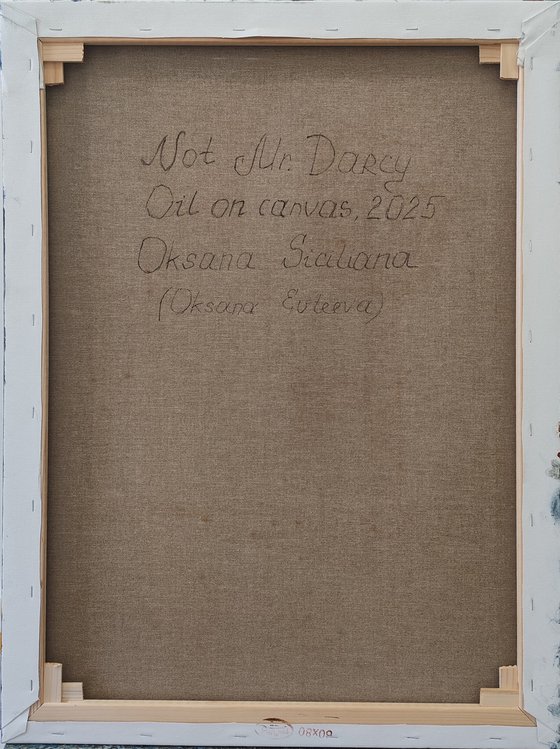 Not Mr. Darcy
Oil on canvas, 2025
Oksana Siciliana
(Oksana Evteeva)